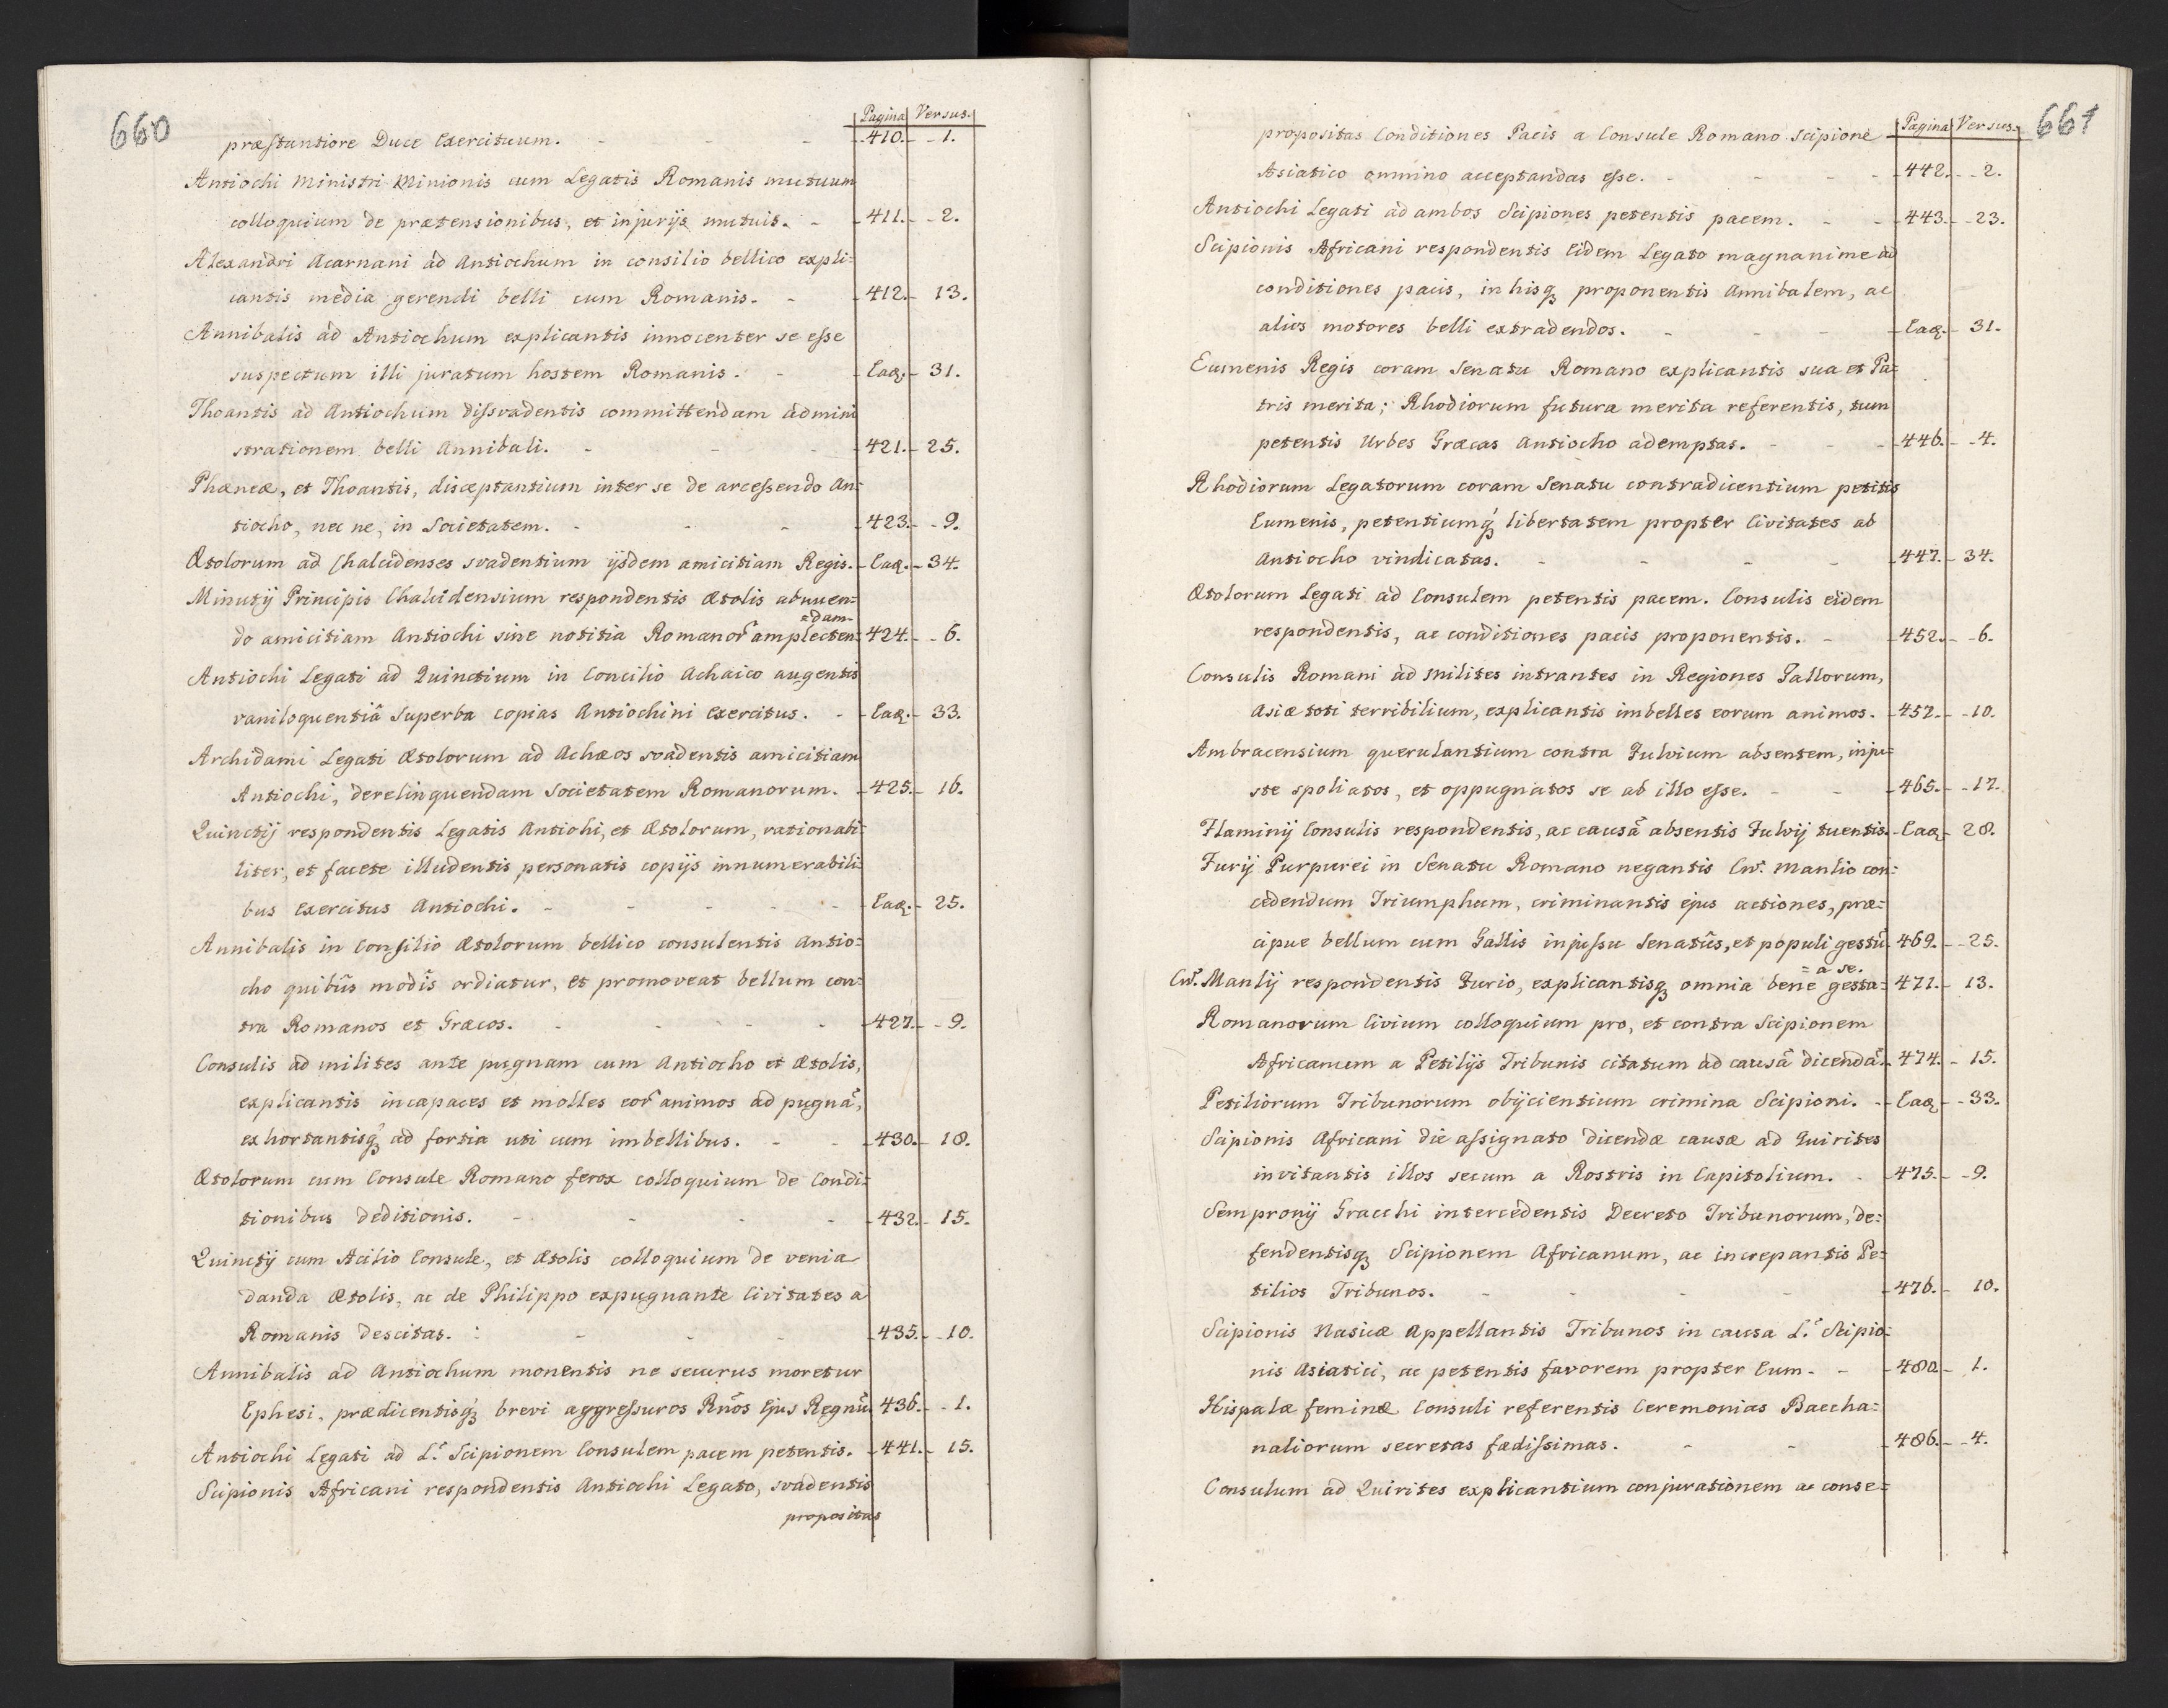 660
Pagina Versus.
præstantiore Duce Exercituum. - - - 410. - 1.
Antiochi Ministri Minionis cum Legatis Romanis mutuum
colloquium de prætensionibus, et injurijs mutuis. - 411. - 2.
Alexandri Acarnani ad Antiochum in consilio bellico expli=
cantis media gerendi belli cum Romanis. - 412. - 13.
Annibalis ad Antiochum explicantis innocenter se esse
suspectum illi juratum hostem Romanis. - Eaq. - 31.
Thoantis ad Antiochum dissvadentis committendam admini
strationem belli Annibali. - - - 421. - 25.
Phæneæ, et Thoantis, disceptantium inter se de arcessendo An=
tiocho, nec ne, in Societatem. - - - 423. - 9.
Ætolorum ad Chalcidenses svadentium ijsdem amicitiam Regis. - Eaq. - 34.
Minutij Principis Chalcidensium respondentis Ætolis abnuen=
=dam.
do amicitiam Antiochi sine notitia Romanor̃ amplecten= 424. - 6.
Antiochi Legati ad Quinctium in Concilio Achaico augentis
vaniloquentiâ superba copias Antiochini Exercitus. - Eaq. - 33.
Archidami Legati Ætolorum ad Achæos svadentis amicitiam
Antiochi, derelinquendam Societatem Romanorum. - 425. - 16.
Quinctij respondentis Legatis Antiohi, et Ætolorum, rationabi=
liter, et facete illudentis personatis copijs innumerabili=
bus Exercitus Antiochi. - - - - - Eaq. - 25.
Annibalis in Consilio Ætolorum bellico consulentis Antio=
cho quibûs modîs ordiatur, et promoveat bellum con=
tra Romanos et Græcos. - - - - - 427. - 9.
Consulis ad milites ante pugnam cum Antiocho et Ætolis,
explicantis incapaces et molles eor̃ animos ad pugnã,
exhortantisq́ʒ ad fortia uti cum imbellibus. - - 430. - 18.
Ætolorum cum Consule Romano ferox colloquium de Condi=
tionibus Deditionis. - - - - 432. - 15.
Quinctij cum Acilio Consule, et Ætolis colloquium de venia
danda Ætolis, ac de Philippo expugnante Civitates a
Romanis Descitas. : - - - 435. - 10.
Annibalis ad Antiochum monentis ne securus moretur
Ephesi, prædicentisq́ʒ brevi aggressuros Rños Ejus Regnũ. 436. - 1.
Antiochi Legati ad L.̃ Scipionem Consulem pacem petentis. - 441. - 15.
Scipionis Africani respondentis Antiochi Legato, svadentis
propositas
661
Pagina Versus.
propositas Conditiones Pacis a Consule Romano Scipione
Asiatico omnino acceptandas esse. - - - 442. - 2.
Antiochi Legati ad ambos Scipiones petentis pacem. - - 443. - 23.
Scipionis Africani respondentis Eidem Legato magnanime ad
conditiones pacis, in hisqʒ proponentis Annibalem, ac
alios motores belli extradendos. - - - Eaq. - 31.
Eumenis Regis coram Senatu Romano explicantis sua et Pa=
tris merita; Rhodiorum futura merita referentis, tum
petentis Urbes Græcas Antiocho ademptas. - - - 446. - 4.
Rhodiorum Legatorum coram Senatu contradicentium petitis
Eumenis, petentiumq́ʒ libertatem propter Civitates ab
Antiocho vindicatas. - - - - 447. - 34.
Ætolorum Legati ad Consulem petentis pacem. Consulis eidem
respondentis, ac conditiones pacis proponentis. - 452. - 6.
Consulis Romani ad Milites intrantes in Regiones Gallorum,
Asiæ toti terribilium, explicantis imbelles eorum animos. - 457. - 10.
Ambracensium querulantium contra Fulvium absentem, inju=
ste spoliatos, et oppugnatos se ab illo esse. - - 465. - 17.
Flaminij Consulis respondentis, ac causã absentis Fulvij tuentis. - Eaq. - 28.
Furij Purpurei in Senatu Romano negantis Cn.̃ Manlio con=
cedendum Triumphum, criminantis ejus actiones, præ=
cipue bellum cum Gallis injussu Senatûs, et populi gestũ. 469. - 25.
= a se.
Cn.̃ Manlij respondentis Furio, explicantisqʒ omnia bene gesta= 471. - 13.
Romanorum Civium colloquium pro, et contra Scipionem
Africanum a Petilijs Tribunis citatum ad causã dicendã. 474. - 15.
Petiliorum Tribunorum obijcientium crimina Scipioni. - Eaq. - 33.
Scipionis Africani die assignato dicendæ causæ ad Quirites
invitantis illos secum a Rostris in Capitolium. - 475. - 9.
Sempronij Gracchi intercedentis Decreto Tribunorum, de=
fendentisqʒ Scipionem Africanum, ac increpantis Pe=
tilios Tribunos. - - - - 476. - 10.
Scipionis Nasicæ Appellantis Tribunos in causa L.̃ Scipio=
nis Asiatici, ac petentis favorem propter Eum. - - 480. - 1.
Hispalæ feminæ Consuli referentis Ceremonias Baccha=
naliorum secretas fædissimas. - - 486. - 4.
Consulum ad Quirites explicantium conjurationem ac conse=